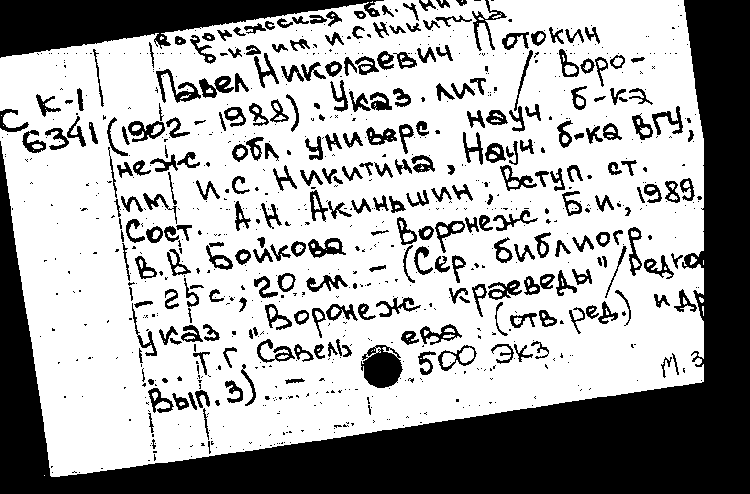 Воронежская обл. универ
б-ка им. И.С. Никитина.
Павел Николаевич Потокин
С К-1
6341
(1902-1988) : Указ. лит. / Воро-
нежс. обл. универс. науч. б-ка
им. И.С. Никитина, Науч. б-ка ВГУ;
Сост. А.Н. Акиньшин; Вступ. ст.
В.В. Бойкова. - Воронеж: Б.и., 1989.
- 25 с.; 20 см. - (Сер. библиогр.
указ. "Воронеж. краеведы" / Редко
... Т.Г. Савельева (отв. ред.) и др
Вып. 3). - 500 экз.
М. 3